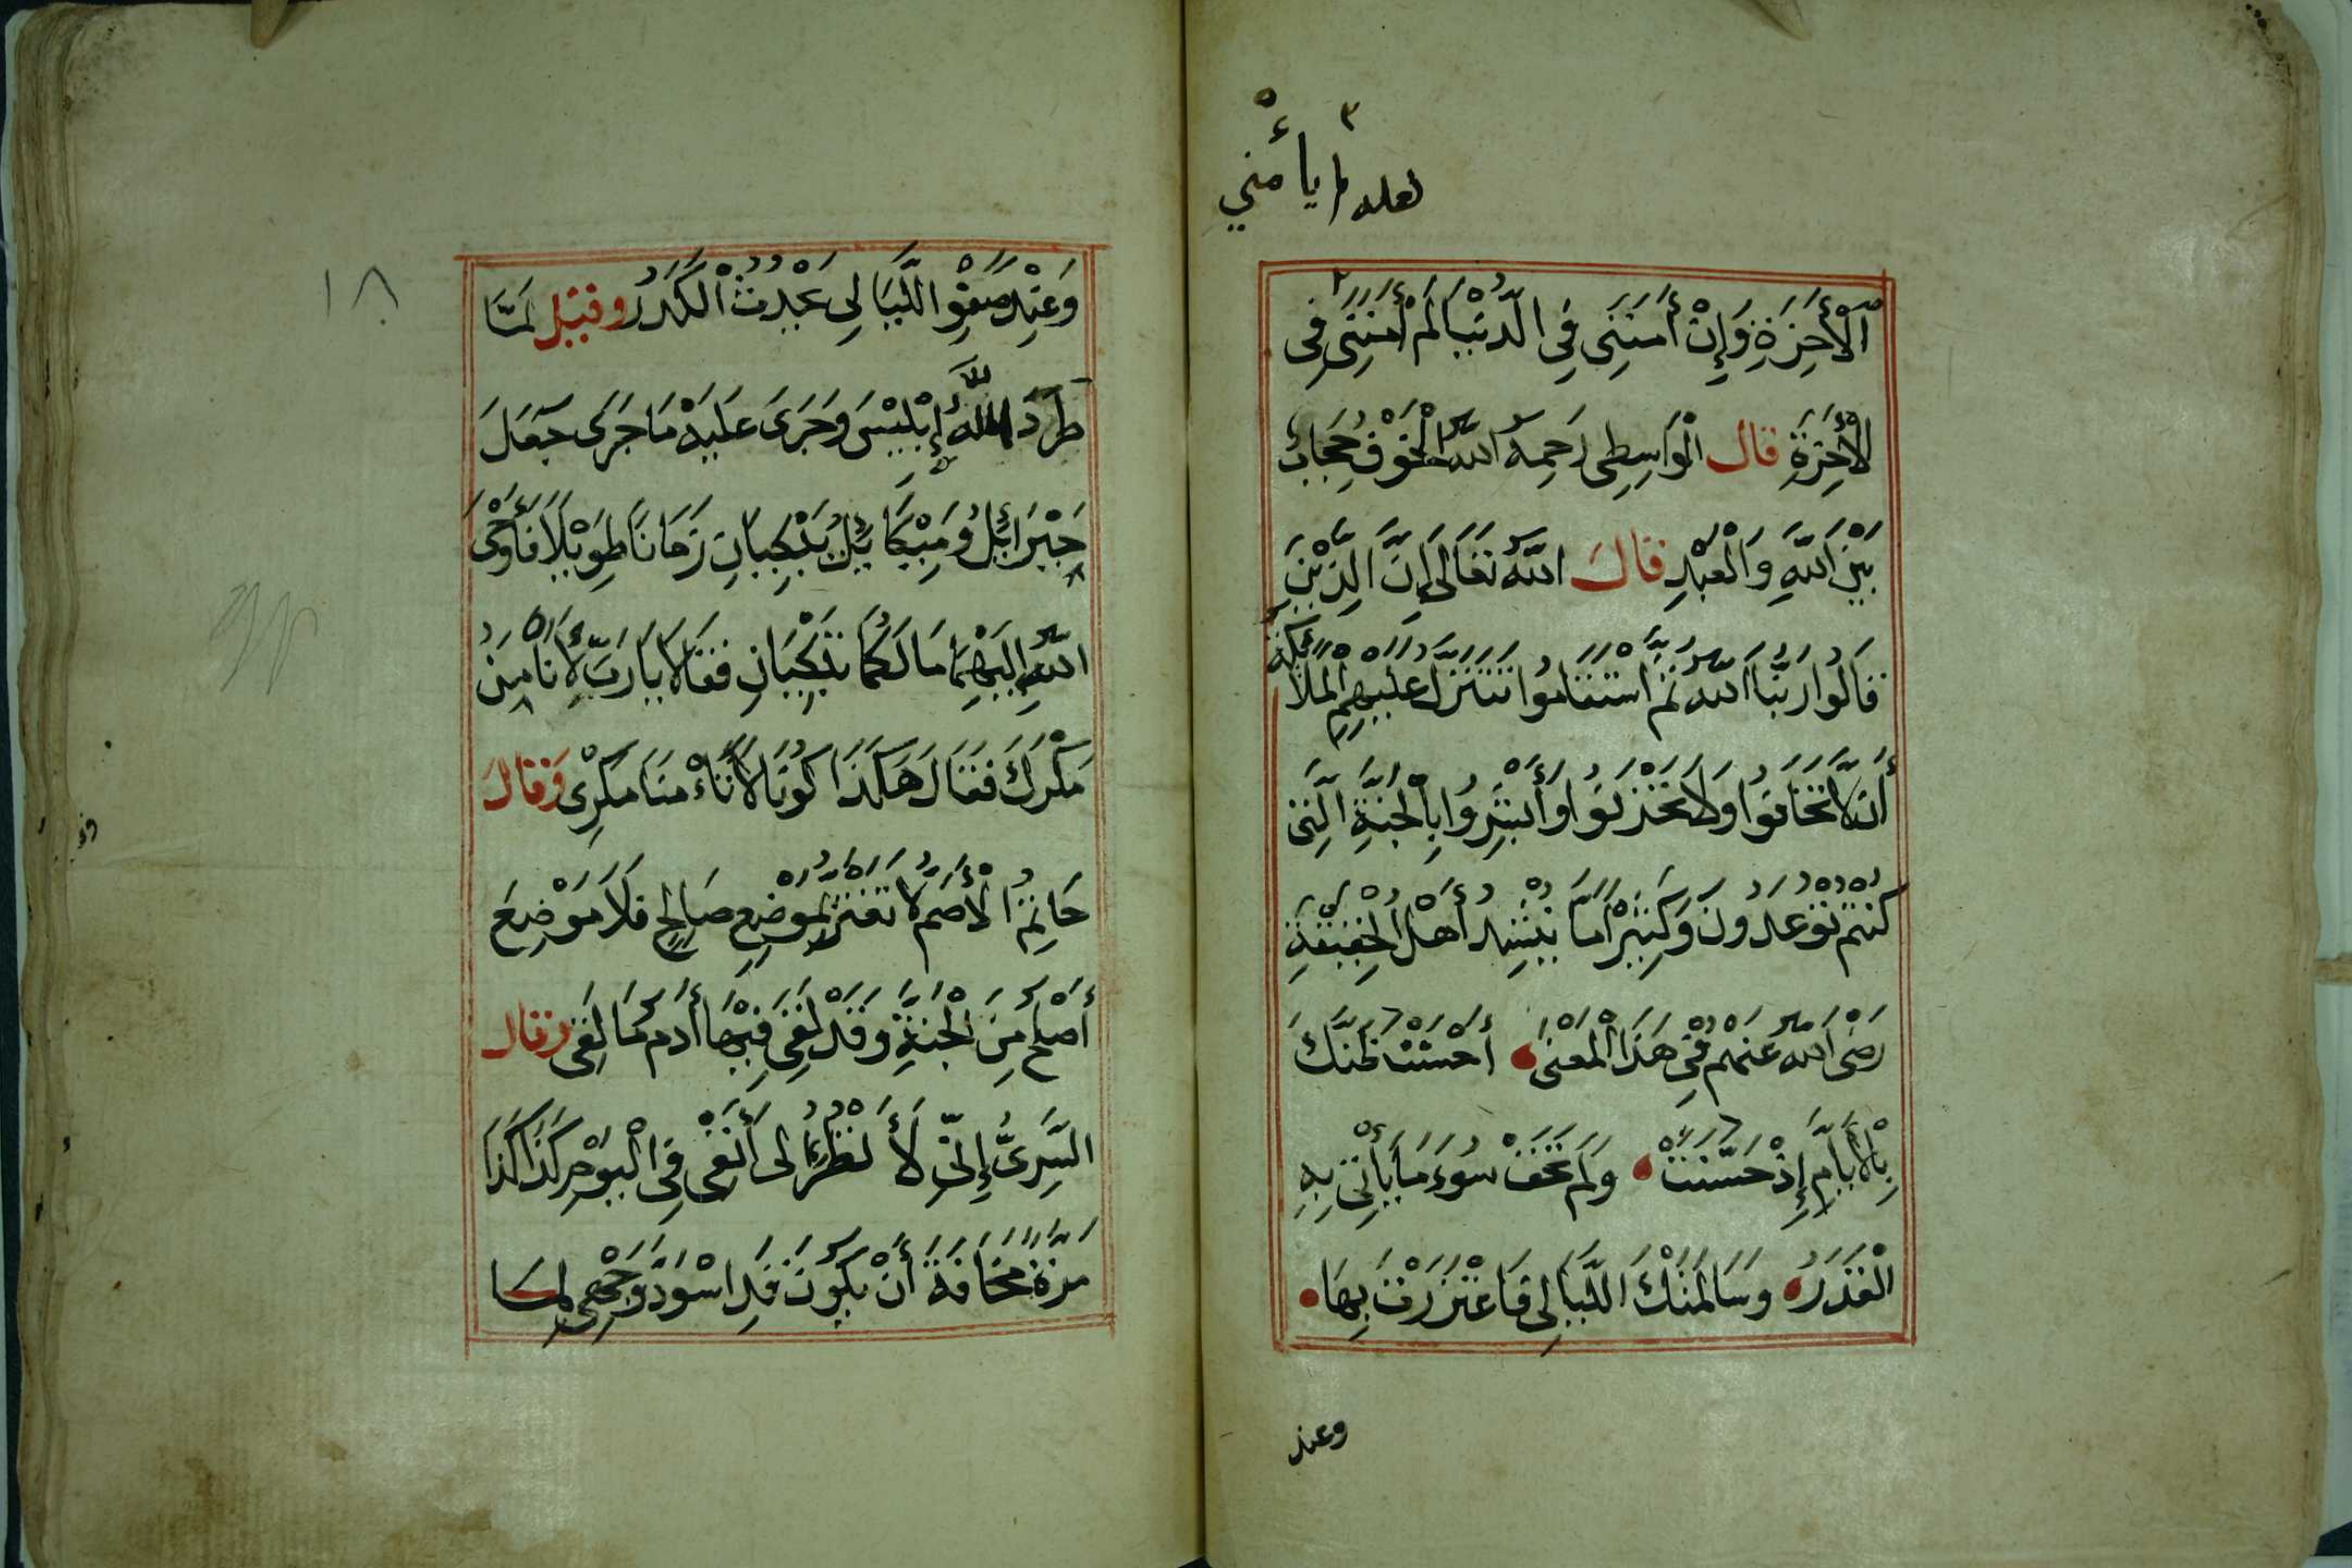 ٣
لعله لم يأمني
اَلْأٓخِرَةِ وَإِنْ أَمَنَنِي فِي الدُّنْيَا لَمْ أَمَنَنِى فِى
الْأٓخِرَةِ قال الْوَاسِطِى رَحِمَهُ اللّٰهُ الْخَوْفُ حِجَابٌ
بَيْنَ اللّٰهِ وَالْعَبْدِ قالَ اللّٰهُ تَعَالَى إِنَّ الَّذِيْنَ
قَالُوا رَبُّنَا اللّٰهُ ثُمَّ اسْتَقَامُوا تَتَنَزَّلُ عَلَيْهِمُ الْمَلَائِكَةُ
أَنْ لَّا تَخَافُوا وَلَا تَحْزَنُوا وَأَبْشِرُوا بِالْجَنَّةِ الَّتِى
كُنْتُمْ تُوْعَدُوْنَ وَكَثِيْرًا مَا يُنْشِدُ أَهْلُ الْحَقِيْقَةِ
رَضَى اللّٰهُ عَنْهُمْ فِى هٰذَا الْمَعْنٰى أَحْسَنْتَ ظَنَّكَ
بِالْأَيَّامِ إِذْ حَسُنَتْ وَلَمْ تَخَفْ سُوْءَ مَا يَأْتِى بِهِ
الْقَدَرُ وَسَالَمَتْكَ اللَّيَالِى فَاغْتَرَرْتَ بِهَا
وعند
١٨
وَعِنْدَ صَفْوِ اللَّيَالِى يَحْدُثُ الْكَدَرُ وقيل لَمَّا
طَرَدَ اللّٰهُ إِبْلِيْسَ وَجَرَى عَلَيْهِ مَا جَرَى جَعَلَ
جِبْرَائِيلُ وَمِيْكَائِيلُ يَبْكِيَانِ زَمَانًا طَوِيْلًا فَأَوْحَى
اللّٰهُ إِلَيْهِمَا مَا لَكُمَا تَبْكِيَانِ فَقَالَا يَا رَبِّ لِأَنَّا مِنْ
مَكْرِكَ فَقَالَ هٰكَذَا كُوْنَا لَا تَأْمَنَا مَكْرِى وَقالَ
حَاتِمُ الْأَصَمُّ لَا تَغْتَرَّ بِمَوْضِعٍ صَالِحٍ فَلَا مَوْضِعَ
أَصْلَحُ مِنَ الْجَنَّةِ وَقَدْ لَقِىَ فِيْهَا أَدَمُ مَا لَقِىَ وقال
السَّرِىُّ إِنِّى لَأَنْظُرُ إِلَى أَنْفِى فِى الْيَوْمِ كَذَا كَذَا
مَرَّةً مَخَافَةَ أَنْ يَكُوْنَ قَدِ اسْوَدَّ وَجْهِى لِمَا